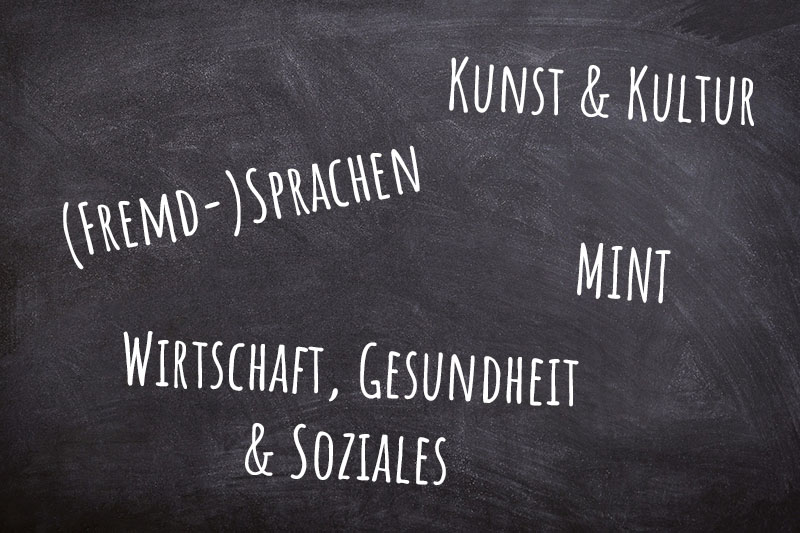 Kunst & Kultur
(Fremd-)Sprachen
MINT
Wirtschaft, Gesundheit
& Soziales